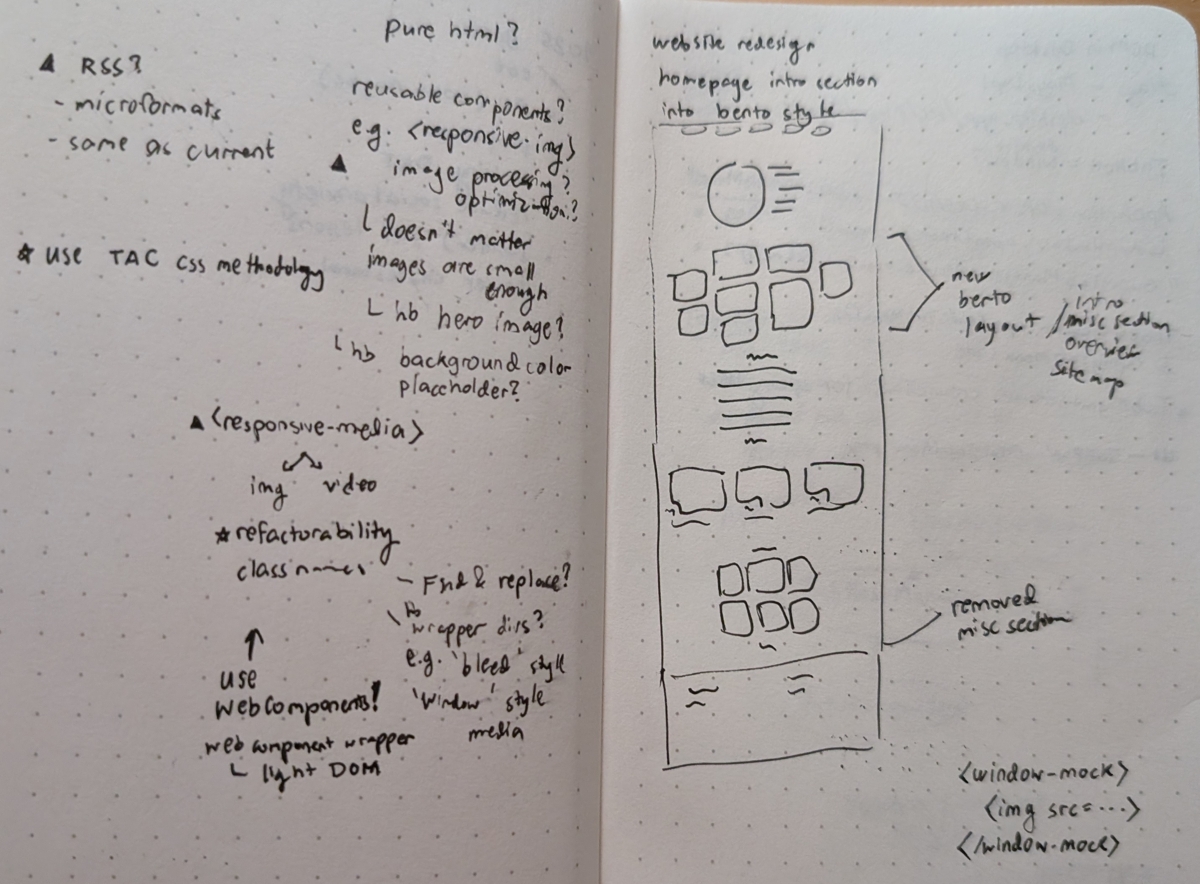 Pure html?
▲ RSS?
- microformats
- same as current
reusable components?
e.g. <responsive-img>
▲ image processing?
optimization?
└ doesn't matter
images are small
enough
└ hb hero image?
└ hb background color
placeholder?
★ USE TAC CSS methodology
▲ <responsive-media>
img video
★ refactorability
class names
- Find & replace?
wrapper divs?
e.g. 'bleed' style
'window' style
media
↑
use
WebComponents!
web component wrapper
└ light DOM
website redesign
homepage intro section
into bento style
new
bento
layout / intro
misc section
overview
sitemap
removed
misc section
<window-mock>
<img src=...>
</window-mock>